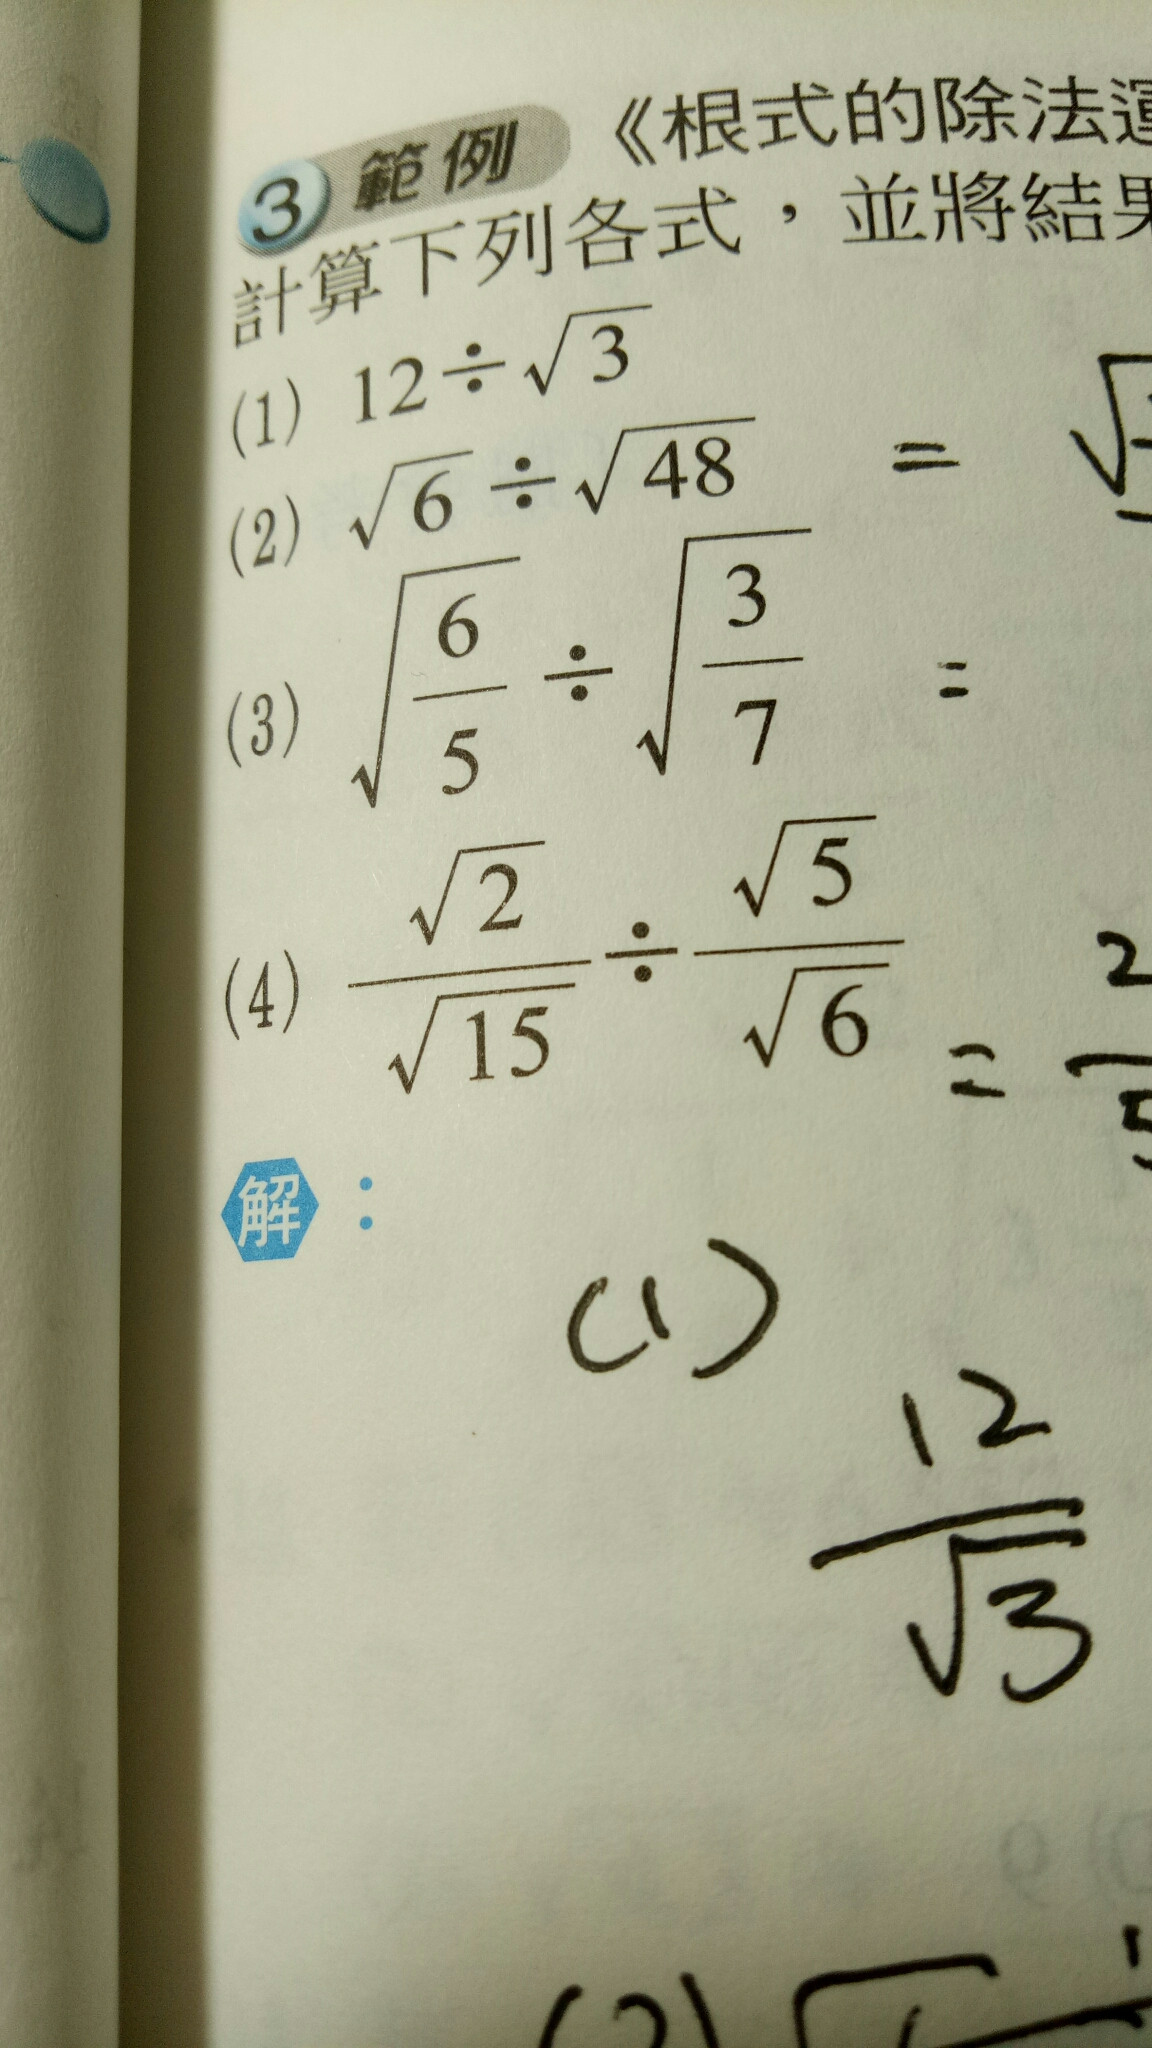 3 範例 《根式的除法運
計算下列各式，並將結果
(1) 12÷√3
(2) √6÷√48 = √
(3) √(6/5)÷√(3/7) =
(4) √2/√15÷√5/√6 = 2/5
解：
(1)
12/√3
(2)